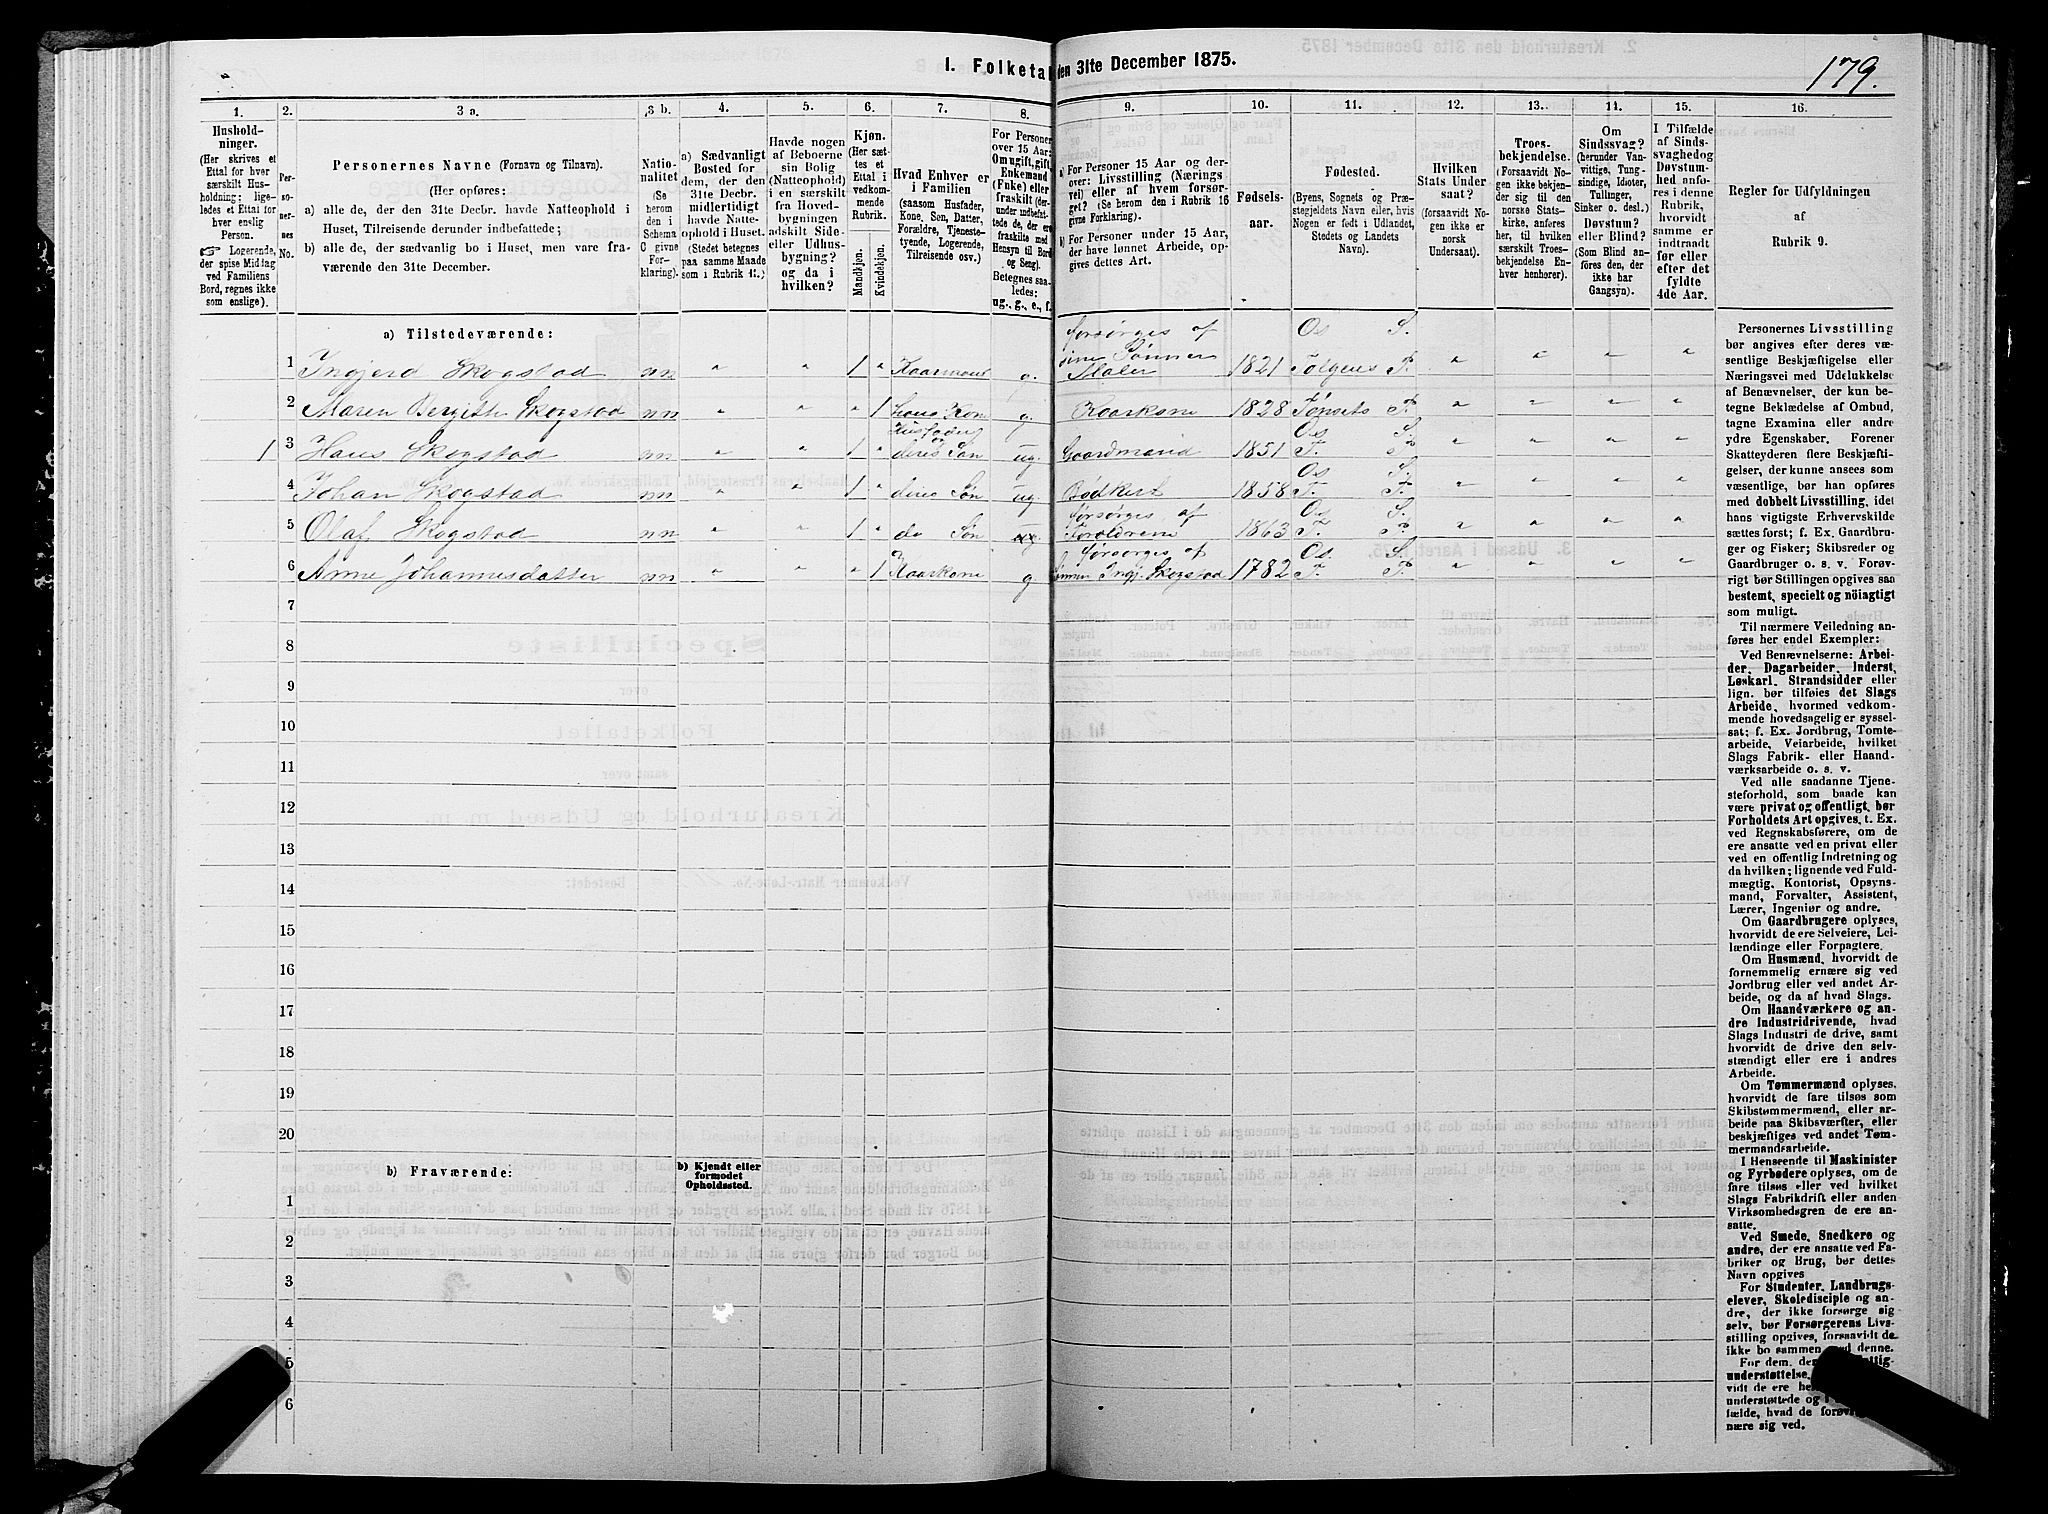 I. Folketal den 31te December 1875.
179.
1. 2. 3 a. 3 b. 4. 5. 6. 7. 8. 9. 10. 11. 12. 13. 14. 15. 16.
Hushold-
ninger.
(Her skrives et
Ettal for hver
særskilt Hus-
holdning: lige-
ledes et Ettal for
hver enslig
Person.
☞ Logerende,
der spise Middag
ved Familiens
Bord, regnes ikke
som enslige).
Per-
soner-
nes
No.
Personernes Navne (Fornavn og Tilnavn).
(Her opføres:
a) alle de, der den 31te Decbr. havde Natteophold i
Huset, Tilreisende derunder indbefattede;
b) alle de, der sædvanlig bo i Huset, men vare fra-
værende den 31te December.
Natio-
nalitet
(Se
herom
den i
Schema
C givne
For-
klaring).
a) Sædvanligt
Bosted for
dem, der den
31te Decbr.
midlertidigt
havde Natte-
ophold i Huset.
(Stedet betegnes
paa samme Maade
som i Rubrik 11.)
Havde nogen
af Beboerne
sin Bolig
(Natteophold)
i en særskilt
fra Hoved-
bygningen
adskilt Side-
eller Udhus-
bygning?
og da i
hvilken?
Kjøn.
(Her sæt-
tes et
Ettal i
vedkom-
mende
Rubrik.
Mandkjøn.
Kvindekjøn.
Hvad Enhver er
i Familien
(saasom Husfader,
Kone, Søn, Datter,
Forældre, Tjeneste-
tyende, Logerende,
Tilreisende osv.)
For Personer
over 15 Aar:
Om ugift, gift,
Enkemand
(Enke) eller
fraskilt (der-
under indbefat-
tede de, der ere
fraskilte med
Hensyn til Bord
og Seng).
Betegnes saa-
ledes:
ug., g., e., f.
a) For Personer 15 Aar og der-
over: Livsstilling (Nærings-
vei) eller af hvem forsør-
get? (Se herom den i Rubrik 16
givne Forklaring).
b) For Personer under 15 Aar,
der have lønnet Arbeide, op-
gives dettes Art.
Fødsels-
aar.
Fødested.
(Byens, Sognets og Præ-
stegjeldets Navn eller, hvis
Nogen er født i Udlandet,
Stedets og Landets
Navn).
Hvilken
Stats Under
saat?
(forsaavidt No-
gen ikke er
norsk
Undersaat).
Troes-
bekjendelse.
(Forsaavidt No-
gen ikke bekjen-
der sig til den
norske Stats-
kirke, anføres
her, til hvilken
særskilt Troes-
bekjendelse En-
hver henhører).
Om
Sindssvag?
(herunder Van-
vittige, Tung-
sindige, Idioter,
Tullinger,
Sinker o. desl.)
Døvstum?
eller Blind?
(Som Blind an-
føres den, der
ikke har
Gangsyn).
I Tilfælde
af Sinds-
svaghed og
Døvstum-
hed anfø-
res i denne
Rubrik,
hvorvidt
samme er
indtraadt
før eller
efter det
fyldte
4de Aar.
Regler for Udfyldningen
af
Rubrik 9.
a) Tilstedeværende:
1 Ingjerd Skogstad nn " " 1 " Kaarmand g. forsørges af sine Sønner Maler 1821 Os S. Tolgens P. " " " "
2 Maren Bergitte Skogstad nn " " " 1 hans Kone g. Kaarkone 1828 Tønsets P. " " " "
1 3 Hans Skogstad nn " " 1 " Husfader og deres Søn ug. Gaardmand 1851 Os S. T. P. " " " "
4 Johan Skogstad nn " " 1 " deres Søn ug. Bødker 1858 Os S. T. P. " " " "
5 Olaf Skogstad nn " " 1 " do Søn ug forsørges af Foroldrene 1863 Os S. T. P. " " " "
6 Anne Johannesdatter nn " " " 1 Kaarkone g forsørges af Sønnen Ingj. Skogstad 1782 Os. S. T. P. " " " "
7
8
9
10
11
12
13
14
15
16
17
18
19
20
b) Fraværende:
b) Kjendt eller
formodet
Opholdssted.
1
2
3
4
5
6
Personernes Livsstilling
bør angives efter deres væ-
sentlige Beskjæftigelse eller
Næringsvei med Udelukkelse
af Benævnelser, der kun be-
tegne Beklædelse af Ombud,
tagne Examina eller andre
ydre Egenskaber. Forener
Skatteyderen flere Beskjæfti-
gelser, der kunne ansees som
væsentlige, bør han opføres
med dobbelt Livsstilling, idet
hans vigtigste Erhvervskilde
sættes først; f. Ex. Gaardbru-
ger og Fisker; Skibsreder og
Gaardbruger o. s. v. Forøv-
rigt bør Stillingen opgives saa
bestemt, specielt og nöiagtigt
som muligt.
Til nærmere Veiledning an-
føres her endel Exempler:
Ved Benævnelserne: Arbei-
der, Dagarbeider, Inderst,
Løskarl, Strandsidder eller
lign. bør tilføies det Slags
Arbeide, hvormed vedkom-
mende hovedsagelig er syssel-
sat; f. Ex. Jordbrug, Tomte-
arbeide, Veiarbeide, hvilket
Slags Fabrik- eller Haand-
værksarbeide o. s. v.
Ved alle saadanne Tjene-
steforhold, som baade kan
være privat og offentligt, bør
Forholdets Art opgives, t. Ex.
ved Regnskabsførere, om de
ere ansatte ved en privat eller
ved en offentlig Indretning og
da hvilken; lignende ved Fuld-
mægtig, Kontorist, Opsyns-
mand, Forvalter, Assistent,
Lærer, Ingeniør og andre.
Om Gaardbrugere oplyses,
hvorvidt de ere Selveiere, Lei-
lændinge eller Forpagtere.
Om Husmænd, hvorvidt de
fornemmelig ernære sig ved
Jordbrug eller ved andet Ar-
beide, og da af hvad Slags.
Om Haandværkere og an-
dre Industridrivende, hvad
Slags Industri de drive, samt
hvorvidt de drive den selv-
stændigt eller ere i andres
Arbeide.
Om Tømmermænd oplyses,
hvorvidt de fare tilsøs som
Skibstømmermænd, eller ar-
beide paa Skibsværfter, eller
beskjæftiges ved andet Tøm-
mermandsarbeide.
I Henseende til Maskinister
og Fyrbødere oplyses, om de
fare tilsøs eller ved hvilket
Slags Fabrikdrift eller anden
Virksomhedsgren de ere an-
satte.
Ved Smede, Snedkere og
andre, der ere ansatte ved Fa-
briker og Brug, bør dettes
Navn opgives
For Studenter, Landbrugs-
elever, Skoledisciple og an-
dre, der ikke forsørge sig
selv, bør Forsørgerens Livs-
stilling opgives, forsaavidt de
ikke bo sammen med denne.
For dem, der
understøttelse,
vidt de ere
understøttede og
fælde, hvad de
nære sig ved.